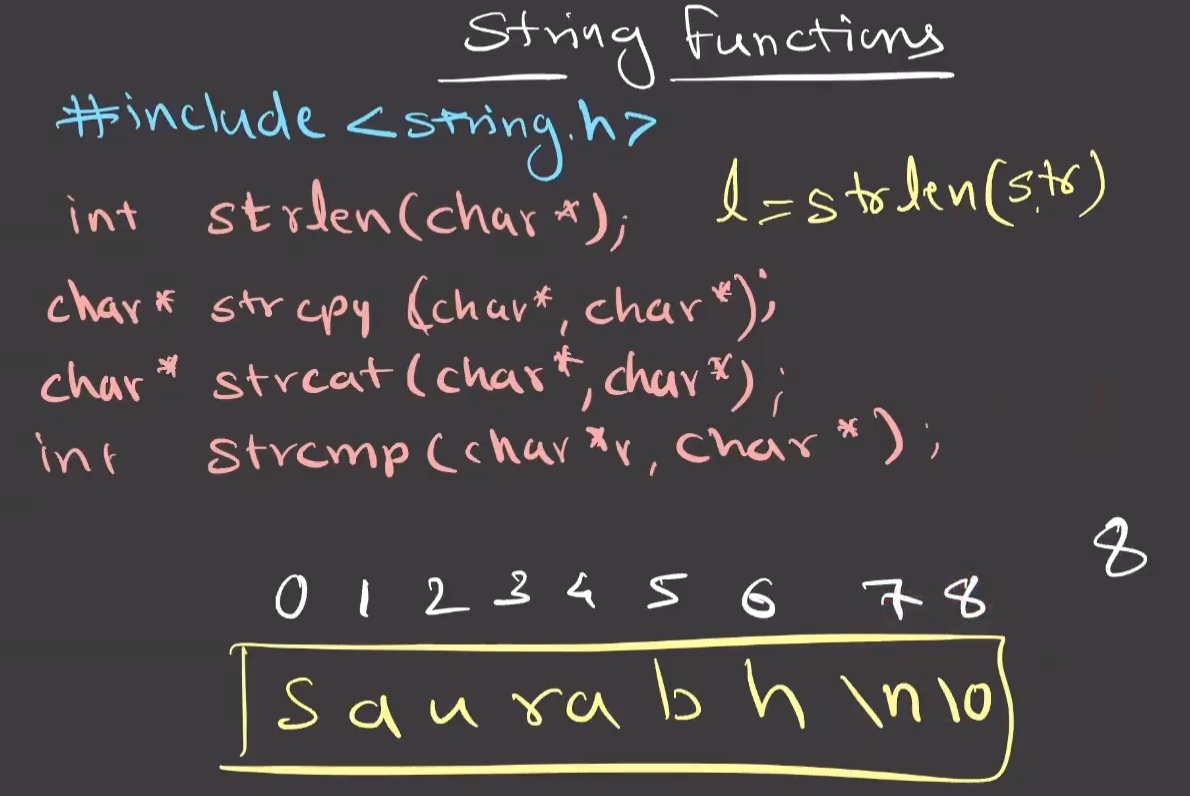 String Functions
#include <string.h>
int strlen(char *); l=strlen(str)
char* strcpy (char*, char*);
char* strcat (char*, char*);
int strcmp (char *r, char *);
8
0 1 2 3 4 5 6 7 8
s a u r a b h \n \0